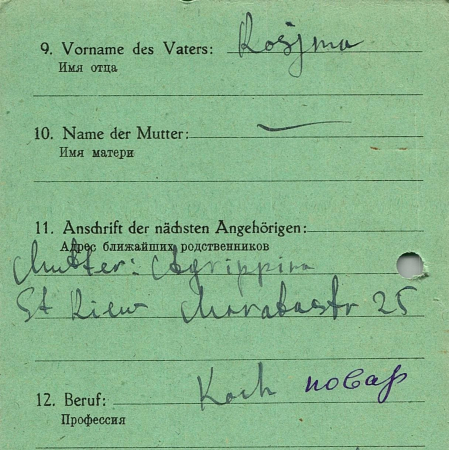 9. Vorname des Vaters: Kosjma
Имя отца
10. Name der Mutter: —
Имя матери
11. Anschrift der nächsten Angehörigen:
Адрес ближайших родственников
Mutter: Agrippina
St Kiew Maratastr 25
12. Beruf: Koch повар
Профессия